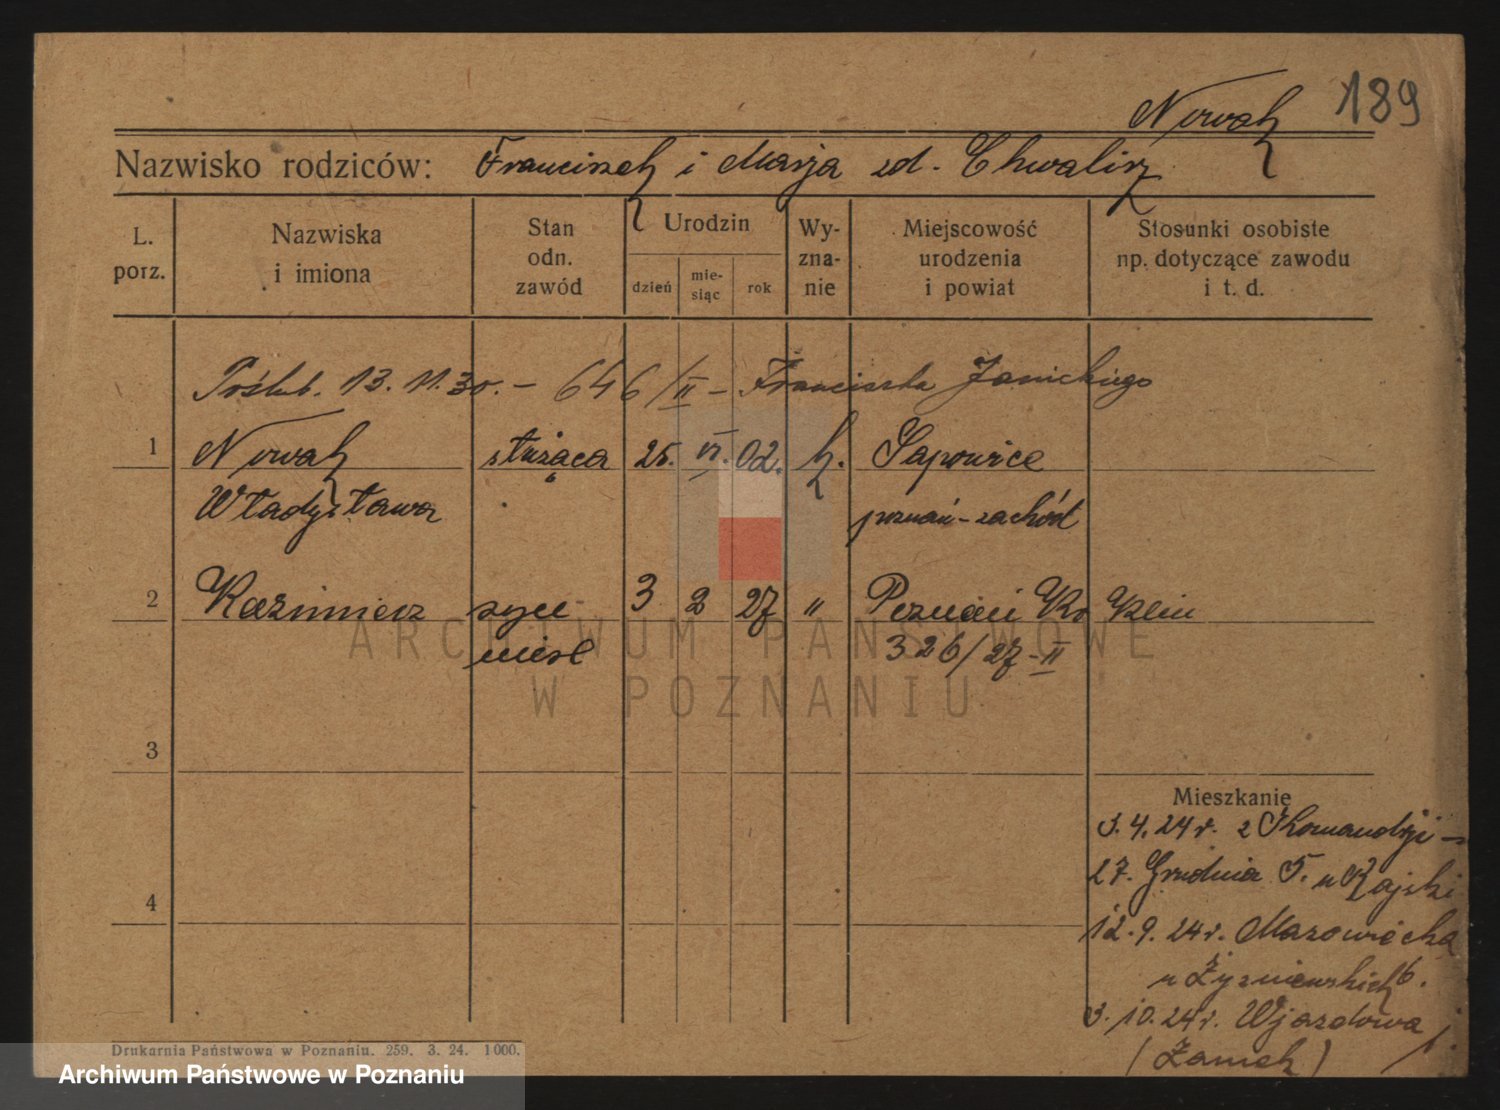 189
Nowak
Nazwisko rodziców: Franciszek i Marja zd. Chwalisz
L. porz.
Nazwiska i imiona
Stan odn. zawód
Urodzin
dzień
mie-siąc
rok
Wy-zna-nie
Miejscowość urodzenia i powiat
Stosunki osobiste np. dotyczące zawodu i t. d.
Poślub. 13. 11. 30. - 646/II - Franciszka Janickiego
1 Nowak służąca 25. VI. 02. k. Sapowice
Władysława poznań-zachód
2 Kazimierz syn 3 2 27 " Poznań
nieśl 326/27-II
3
4
Mieszkanie
3.4.24r. z
27. Grudnia 5. u Rajski
12.9.24r. Mazowiecka
6.
3.10.24r. Wjazdowa
(Zamek)
Drukarnia Państwowa w Poznaniu. 259. 3. 24. 1000.
ARCHIWUM PAŃSTWOWE
W POZNANIU
Archiwum Państwowe w Poznaniu